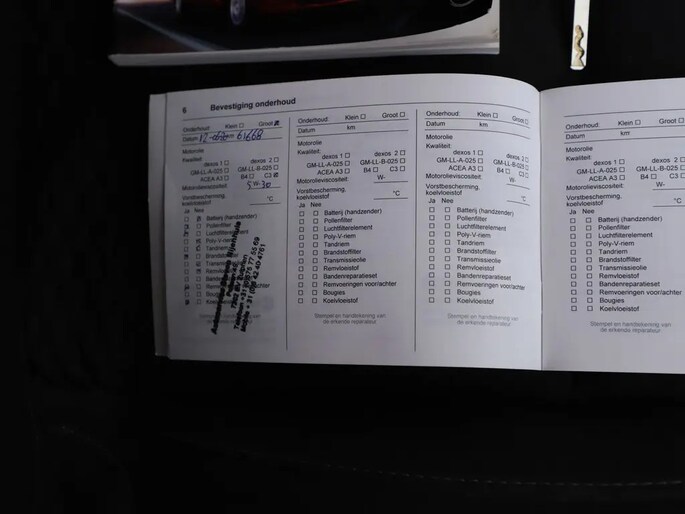 6 Bevestiging onderhoud
Onderhoud: Klein Groot
Datum 17 km 61668
Motorolie
Kwaliteit:
dexos 1 dexos 2
GM-LL-A-025 GM-LL-B-025
ACEA A3 B4 C3
Motorolieviscositeit: 5W-30
Vorstbescherming,
koelvloeistof °C
Ja Nee
Batterij (handzender)
Pollenfilter
Luchtfilterelement
Poly-V-riem
Tandriem
Brandstoffilter
Koelvloeistof
Onderhoud: Klein Groot
Datum km
Motorolie
Kwaliteit:
dexos 1 dexos 2
GM-LL-A-025 GM-LL-B-025
ACEA A3 B4 C3
Motorolieviscositeit: W-
Vorstbescherming,
koelvloeistof °C
Ja Nee
Batterij (handzender)
Pollenfilter
Luchtfilterelement
Poly-V-riem
Tandriem
Brandstoffilter
Transmissieolie
Remvloeistof
Bandenreparatieset
Remvoeringen voor/achter
Bougies
Koelvloeistof
Stempel en handtekening van
de erkende reparateur
Onderhoud: Klein Groot
Datum km
Motorolie
Kwaliteit:
dexos 1 dexos 2
GM-LL-A-025 GM-LL-B-025
ACEA A3 B4 C3
Motorolieviscositeit: W-
Vorstbescherming,
koelvloeistof °C
Ja Nee
Batterij (handzender)
Pollenfilter
Luchtfilterelement
Poly-V-riem
Tandriem
Brandstoffilter
Transmissieolie
Remvloeistof
Bandenreparatieset
Remvoeringen voor/achter
Bougies
Koelvloeistof
Stempel en handtekening van
de erkende reparateur
Onderhoud: Klein
Datum km
Motorolie
Kwaliteit:
dexos 1 dexos
GM-LL-A-025 GM-LL-B-025
ACEA A3 B4 C3
Motorolieviscositeit: W-
Vorstbescherming,
koelvloeistof °C
Ja Nee
Batterij (handzender)
Pollenfilter
Luchtfilterelement
Poly-V-riem
Tandriem
Brandstoffilter
Transmissieolie
Remvloeistof
Bandenreparatieset
Remvoeringen voor/achter
Bougies
Koelvloeistof
Stempel en handtekening van
de erkende reparateur